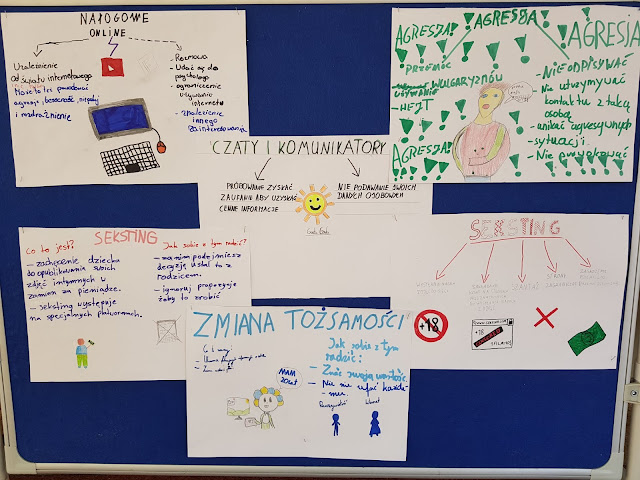 NAŁOGOWE
ONLINE
Uzależnienie
od świata internetowego
Może to też powodować
agresję, bezsenność,
i rozdrażnienie
- Rozmowa
- Udać się do
psychologa
- ograniczenie
używania
internetu
- znalezienie
innego
zainteresowania
AGRESJA!
AGRESJA!
AGRESJA
PRZEMOC
UŻYWANIE WULGARYZMÓW
- HEJT
AGRESJA!
- NIE ODPISYWAĆ
- Nie utrzymywać
kontaktu z taką
osobą
- unikać agresywnych
- sytuacji
- Nie prowokować
CZATY I KOMUNIKATORY
PRÓBOWANIE ZYSKAĆ
ZAUFANIE ABY UZYSKAĆ
CENNE INFORMACJE
NIE PODAWANIE SWOICH
DANYCH OSOBOWYCH
SEKSTING
Co to jest?
- zachęcenie dziecka
do opublikowania swoich
zdjęć intymnych w
zamian za pieniądze.
- seksting występuje
na specjalnych platformach.
Jak sobie z tym radzić?
- zanim podejmiesz
decyzję ustal to z
rodzicem.
- ignoruj propozycje
żeby to zrobić
SEKSTING
+18
+18
ZMIANA TOŻSAMOŚCI
MAM
20 lat
Jak sobie z tym
radzić:
- Znać swoją wartość.
- Nie ufać